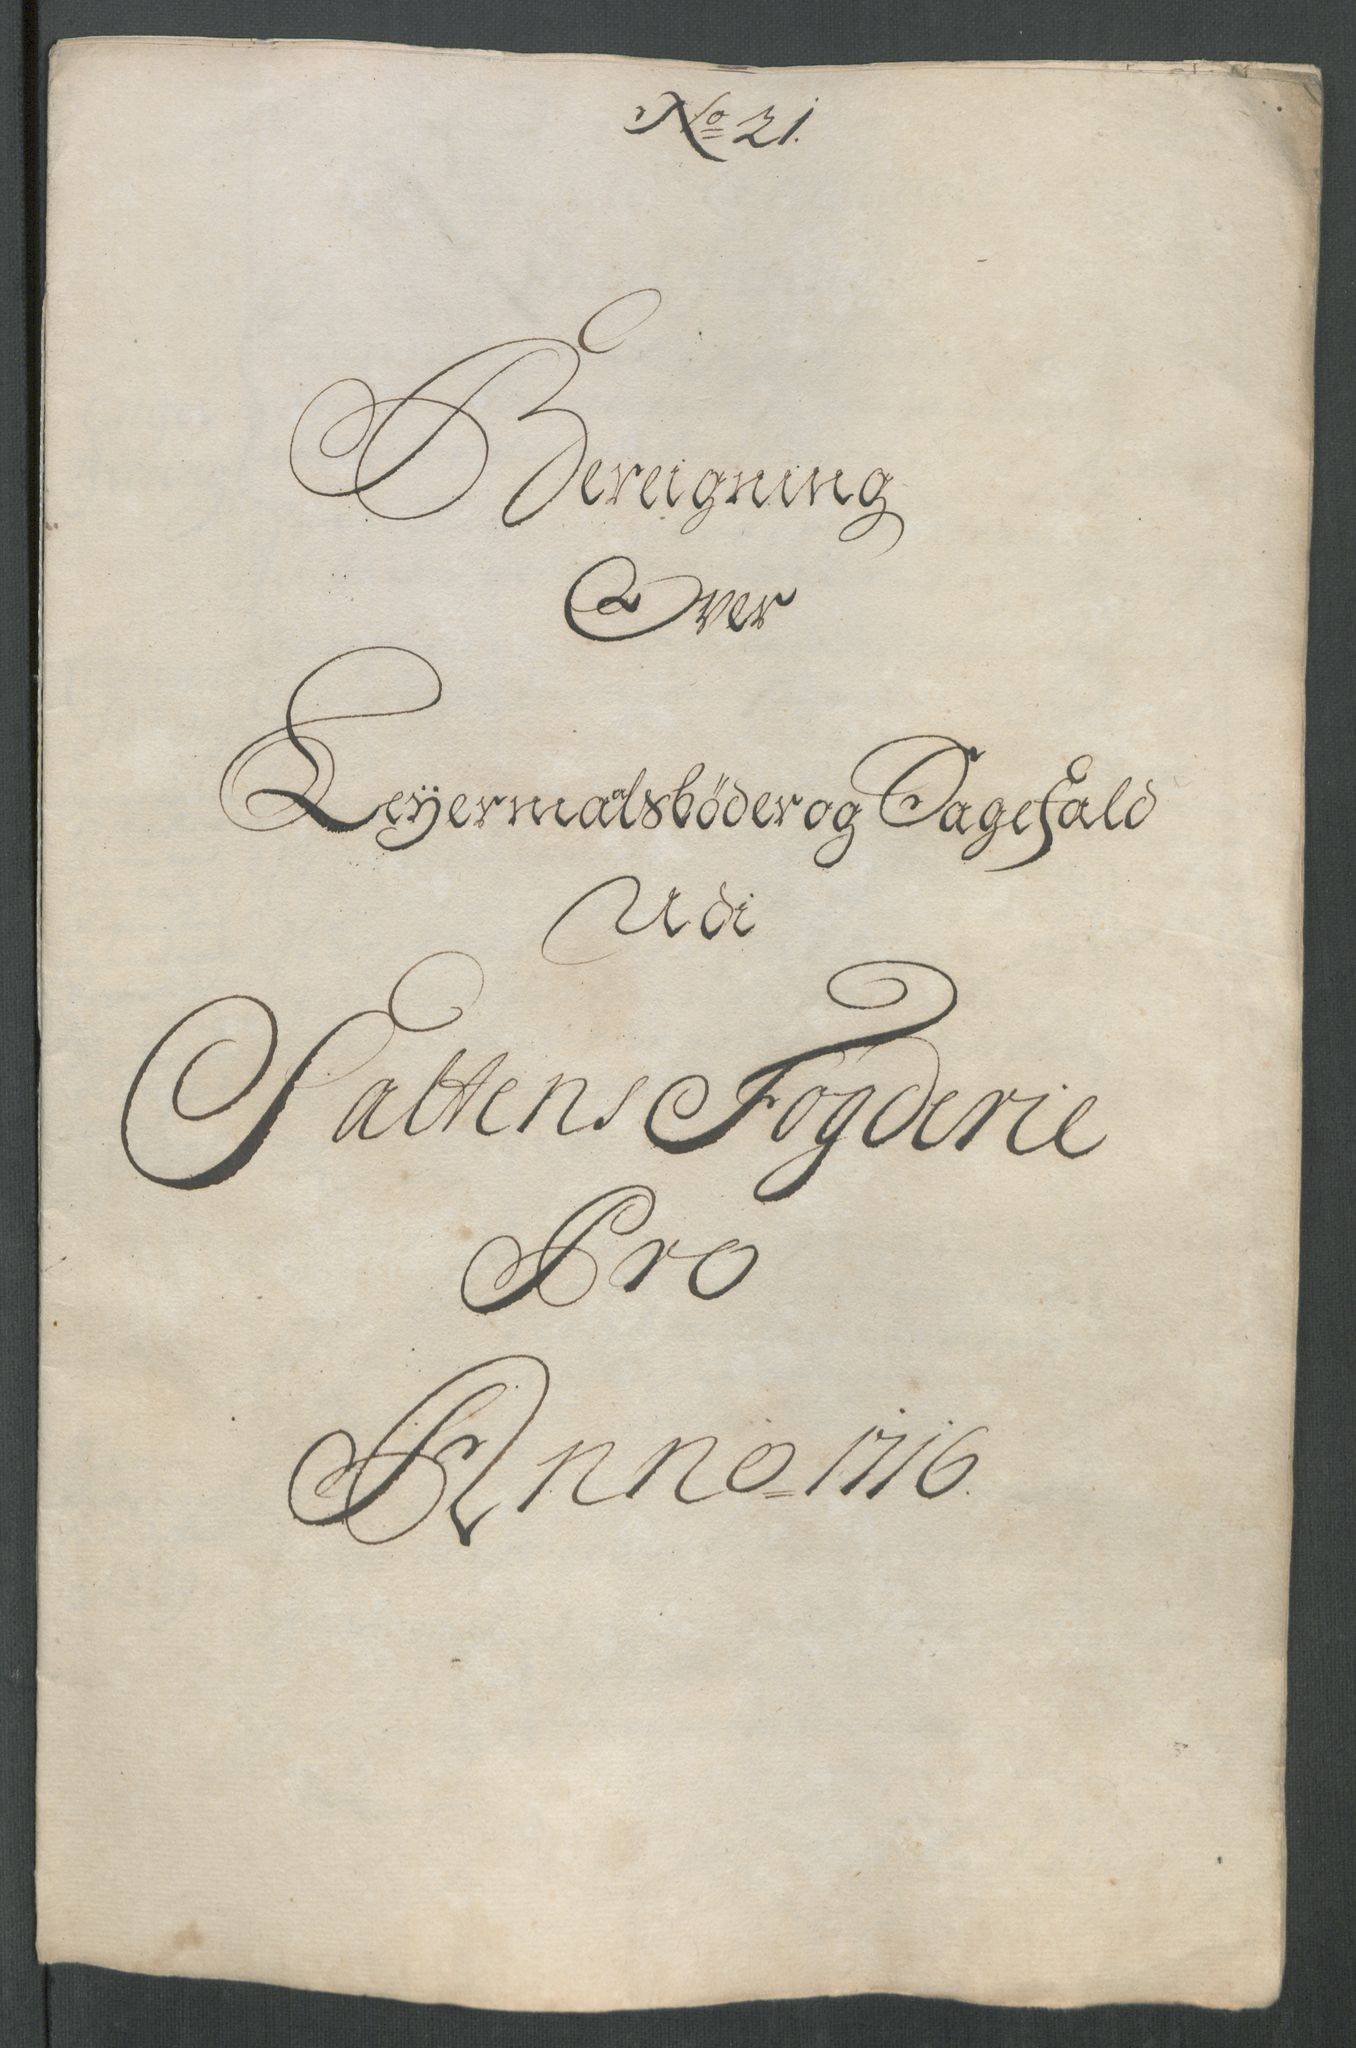 No 21.
Bereigning
Over
Leyermaalsbøder og Sagefald
Udi
Saltens Fogderie
Pro
Anno 1716.